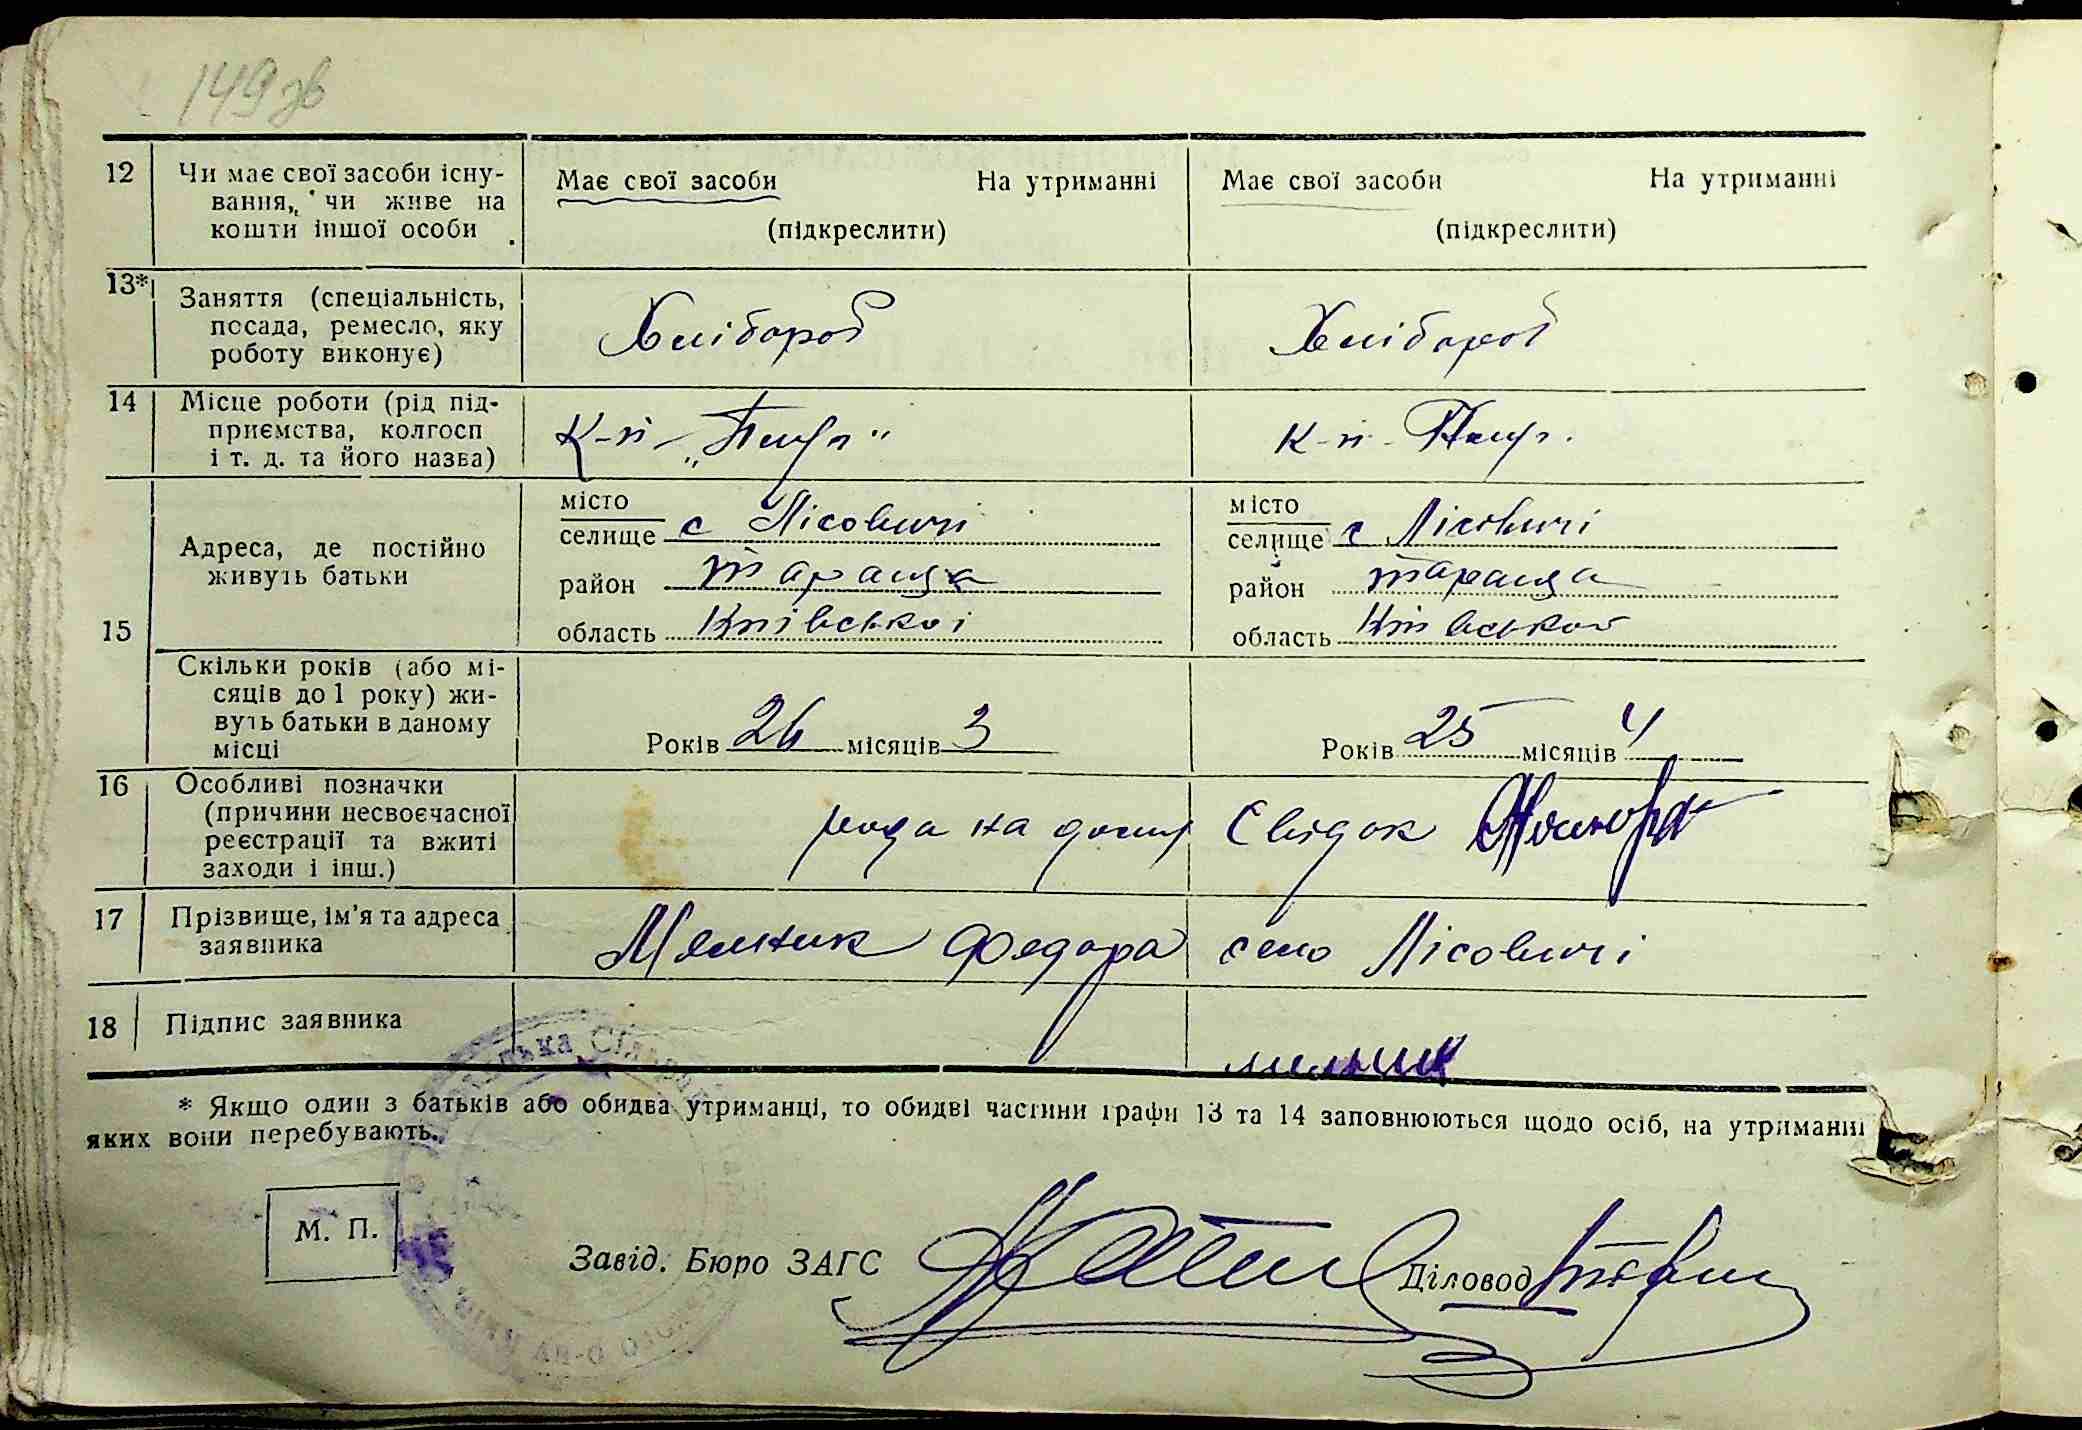 149 зв
12
Чи має свої засоби існу-
вання, чи живе на
кошти іншої особи
Має свої засоби На утриманні
(підкреслити)
Має свої засоби На утриманні
(підкреслити)
13*
Заняття (спеціальність,
посада, ремесло, яку
роботу виконує)
Хлібороб
Хлібороб
14
Місце роботи (рід під-
приємства, колгосп
і т. д. та його назва)
к-п
к-п
15
Адреса, де постійно
живуть батьки
місто
селище с Лісовичі
район Тараща
область Київської
місто
селище с Лісовичі
район Тараща
область Київської
Скільки років (або мі-
сяців до 1 року) жи-
вуть батьки в даному
місці
Років 26 місяців 3
Років 25 місяців 4
16
Особливі позначки
(причини несвоєчасної
реєстрації та вжиті
заходи і інш.)
на дому Свідок
17
Прізвище, ім'я та адреса
заявника
Мельник Федора село Лісовичі
18
Підпис заявника
мельник
* Якщо один з батьків або обидва утриманці, то обидві частини графи 13 та 14 заповнюються щодо осіб, на утриманні
яких вони перебувають.
М. П.
Завід. Бюро ЗАГС
Діловод